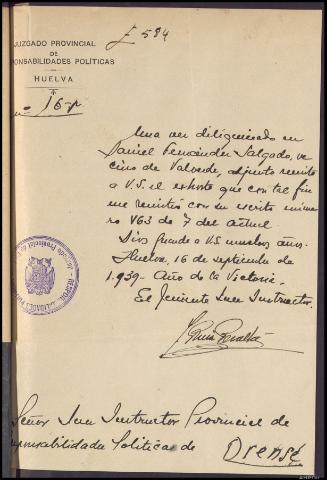 E 584
JUZGADO PROVINCIAL
DE
PONSABILIDADES POLÍTICAS
HUELVA
Una vez diligenciado en
Daniel Fernández Salgado, ve
cino de Valverde, adjunto remito
a V.S. el exhorto que con tal fin
me remitió con su escrito núme
ro 463 de 7 del actual.
Dios guarde a V.S. muchos años.
Huelva, 16 de septiembre de
1.939 - Año de la Victoria.
El Juez Instructor.
Señor Juez Instructor Provincial de
esponsabilidades Políticas de Orense